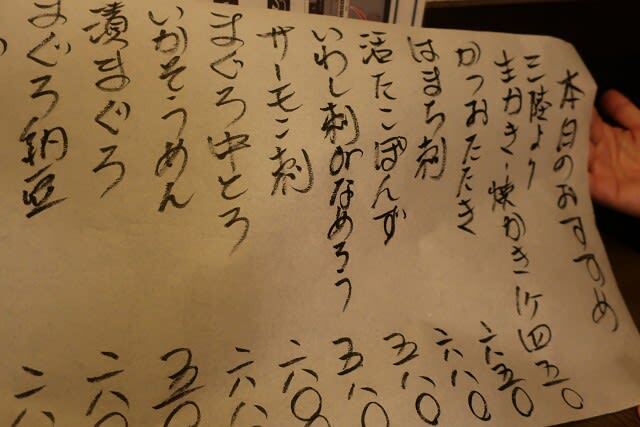 本日のおすすめ
三陸より
生かき・焼かき 一ケ 四五〇
かつおたたき 六五〇
はまち刺 六八〇
活たこぽんず 五八〇
いわし刺かなめろう 五八〇
サーモン刺
まぐろ中とろ
いかそうめん
漬まぐろ
まぐろ納豆